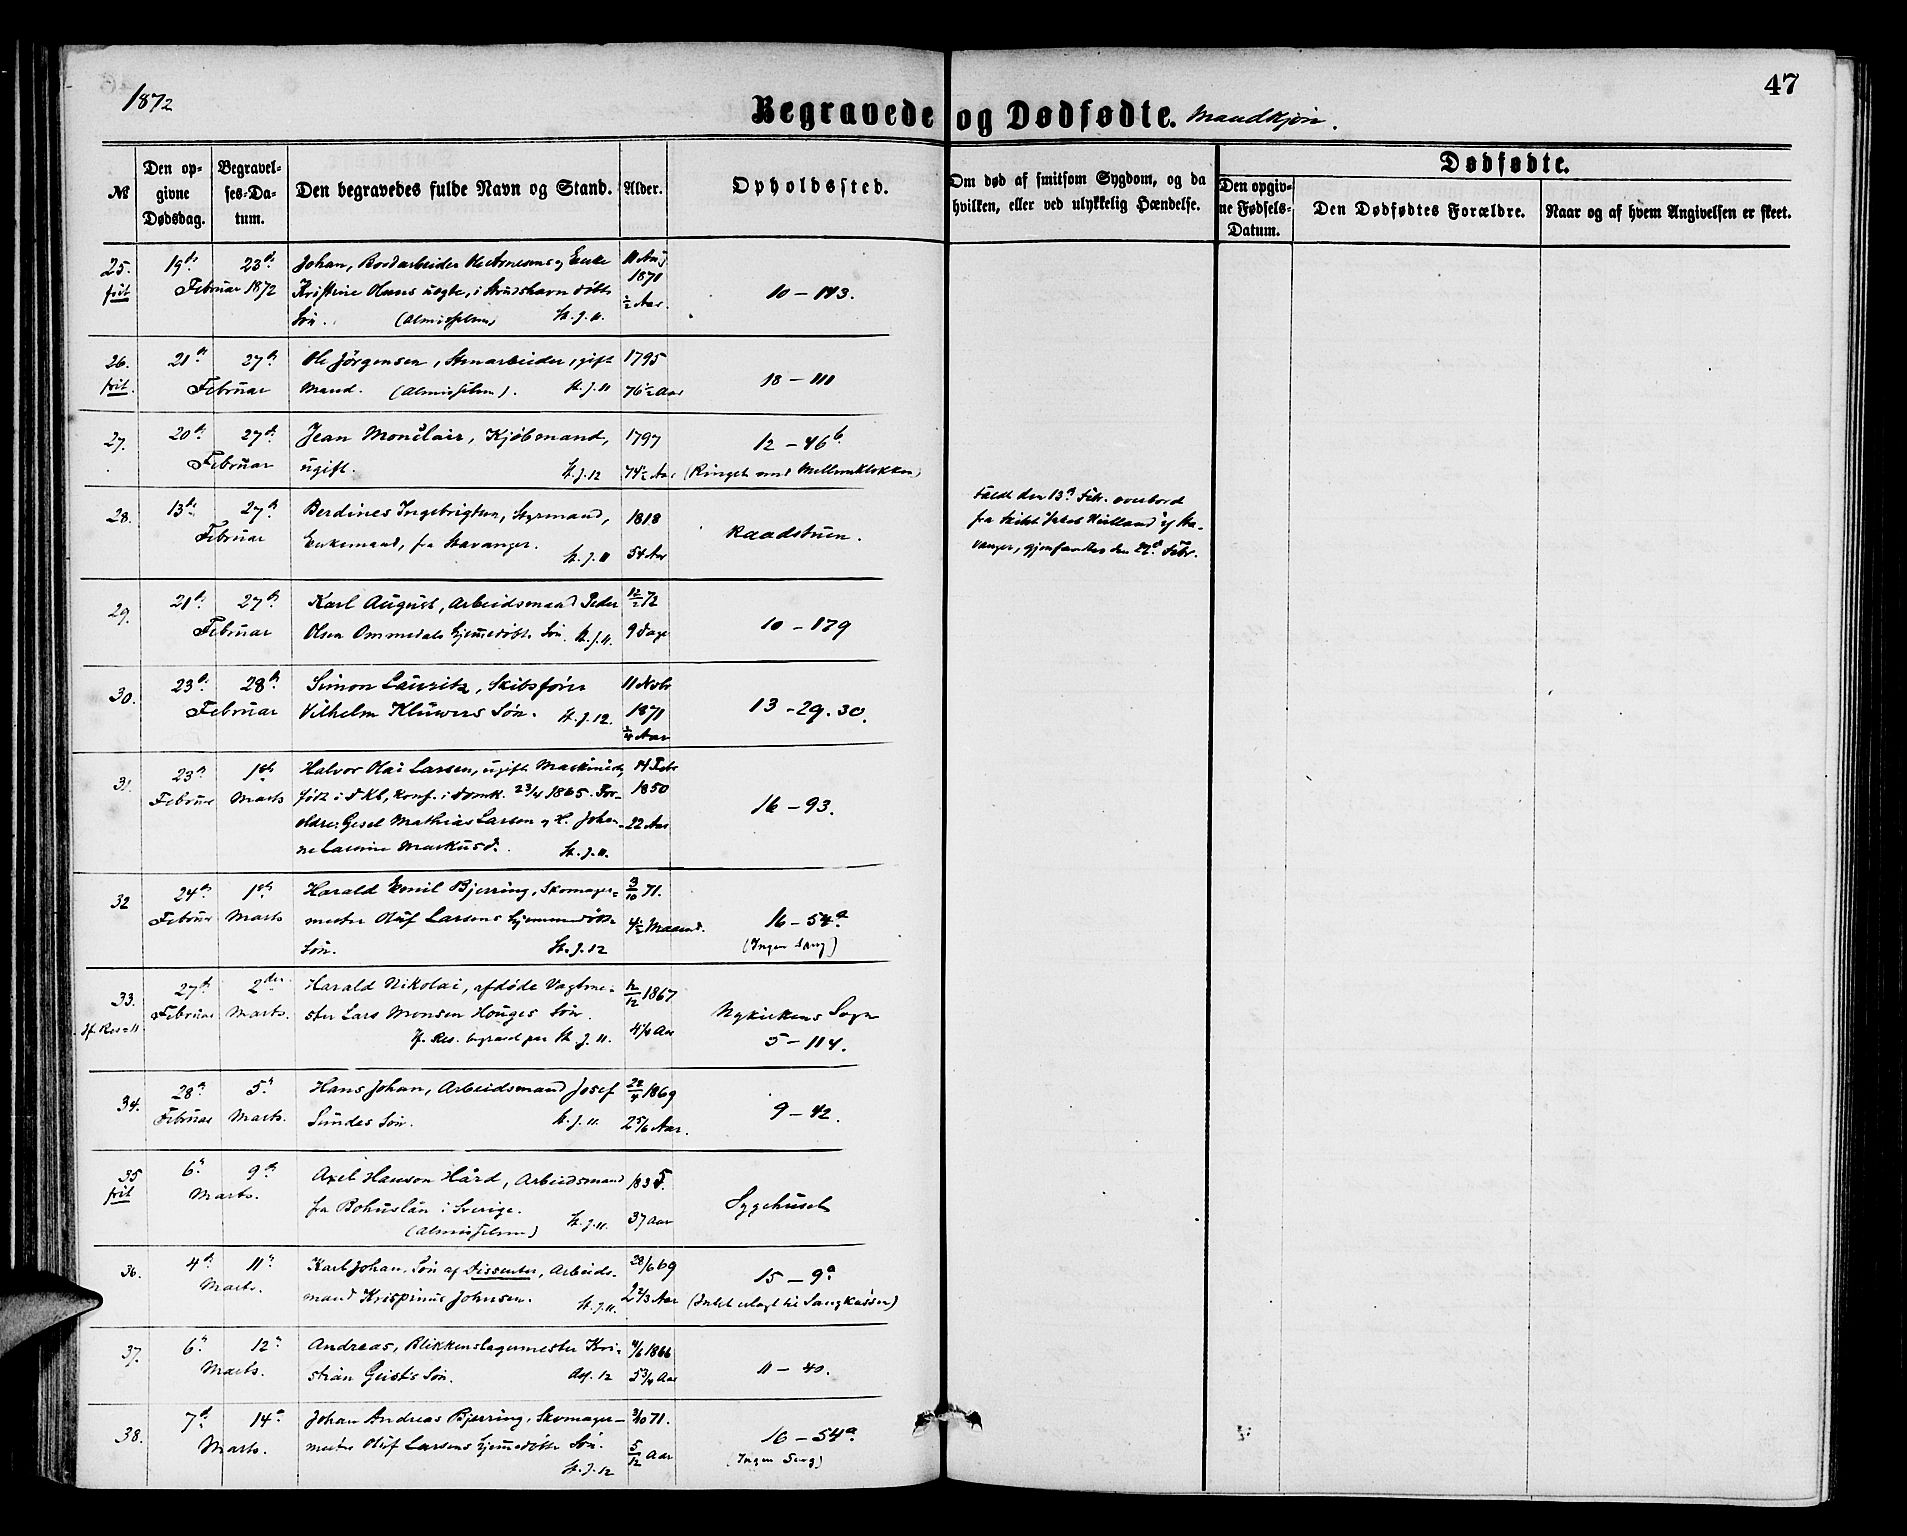 1872
47
Begravede og Dødfødte. Mandkjøn.
№
Den opgivne Dødsdag.
Begravelses-Datum.
Den begravedes fulde Navn og Stand.
Alder.
Opholdssted.
Om død af smitsom Sygdom, og da hvilken, eller ved ulykkelig Hændelse.
Dødfødte.
Den opgivne Fødsels-Datum.
Den Dødfødtes Forældre.
Naar og af hvem Angivelsen er skeet.
25. 19de 23d Johan, Bordarbeider Ole Arnesens og Enke 11 Aug
frit Februar 1872 Kristine Olans uægte, i Strudshavn døbte 1871 10 – 143.
Søn. (Almisselem) St. J. 11. ½ Aar.
26. 21de 27de Ole Jørgensen, Stenarbeider, gift 1795
frit. Februar Mand. (Almisselem). St. J. 11 76½ Aar 18 – 111
27. 20de 27de Jean Monclair, Kjøbmand, 1797 12 – 46b
Februar ugift. St. J. 12 74½ Aar (Ringet med Mellemklokken)
28. 13de 27de Berdines Ingebrigtsen, Styrmand, 1818 Raadstuen.
Februar Enkemand, fra Stavanger. St. J. 11 54 Aar
Faldt den 13de Febr. overbord
fra Skibet Jakob Kielland af Sta-
vanger, gjenfandtes den 22d Febr.
29. 21de 27de Karl August, Arbeidsmand Peder 12/2 72
Februar Olsen Ommedals hjemmedøbte Søn. St. J. 11. 9 Dage 10 – 179
30. 23de 28de Simon Lauritz, Skibsfører 11 Novbr
Februar Vilhelm Klüwers Søn. St. J. 12. 1871 13 – 29. 30.
¼ Aar
31. 23de 1ste Halvor Olai Larsen, ugift Maskinist, 14 Febr
Februar Marts født i DKb, konf. i Domk. 23/4 1865. For- 1850 16 – 93.
ældre: Gesel Mathias Larsen og H. Johan- 22 Aar
ne Laurine Markusd. St. J. 11.
32 24de 1ste Harald Emil Bjerring, Skomager- 3/10 71.
Februar Marts mester Oluf Larsens hjemmedøbte 4½ Maaned. 16 – 54a
Søn. St. J. 12 (Ingen Sang)
33. 27de 2den Harald Nikolai, afdøde Vagtme- 12/12 1867
Februar Marts. ster Lars Monsen Houges Søn. Nykirkens Sogn
begravet paa St. J. 11. 4¼ Aar 5 – 114.
34. 28de 5te Hans Johan, Arbeidsmand Josef 22/4 1869
Februar Marts. Sundes Søn. St. J. 11. 2 5/6 Aar. 9 – 42.
35 6te 9de Axel Hanson Hård, Arbeidsmand 1835.
frit Marts. fra Bohuslän i Sverige. 37 Aar Sygehuset
(Almisselem) St. J. 11.
36. 4de 11te Karl Johan, Søn af Dissenter, Arbeids- 28/6 69 15 – 9a
Marts. mand Krispinus Johnsen. St. J. 11. 2 2/3 Aar (Intet erlagt til Sangkassen)
37. 6te 12te Andreas, Blikkenslagermester Kri- 4/6 1866
Marts. stian Geists Søn. Ass. 12 5¾ Aar 11 – 40.
38. 7de 14de Johan Andreas Bjerring, Skomager- 3/10 71.
Marts. mester Oluf Larsens hjemmedøbte Søn. 5/12 Aar 16 – 54a
St. J. 12 (Ingen Sang)